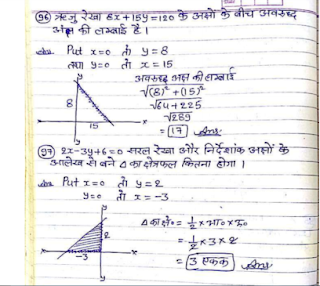 (96) ऋजु रेखा 8x + 15y = 120 के अक्षों के बीच अवरुद्ध
अंश की लम्बाई है ।
Put x = 0 तो y = 8
तथा y = 0 तो x = 15
अवरुद्ध अक्ष की लम्बाई
√(8)² + (15)²
√64 + 225
√289
= (17) Ans
y
8
15
x
(97) 2x - 3y + 6 = 0 सरल रेखा और निर्देशांक अक्षों के
आलेख से बने Δ का क्षेत्रफल कितना होगा ।
Put x = 0 तो y = 2
y = 0 तो x = -3
Δ का क्षे० = 1/2 × आ० × ऊ०
= 1/2 × 3 × 2
= (3 एकक) Ans
y
2
-3
x